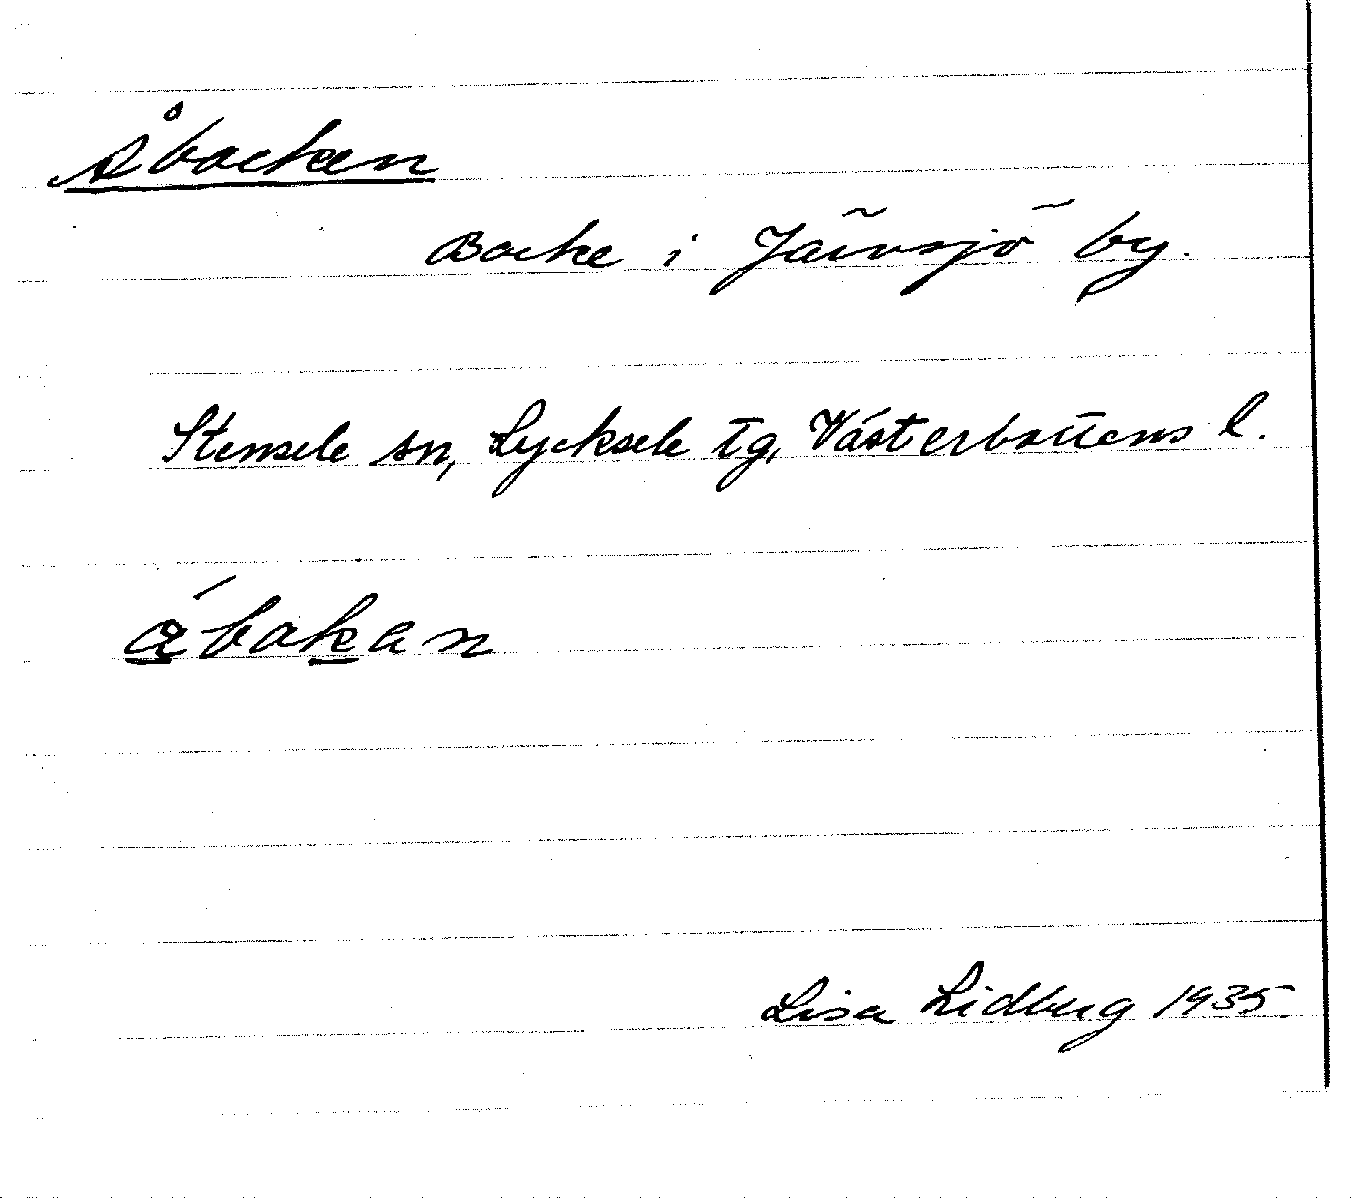 Åbacken
Backe i Järvsjö by.
Stensele sn, Lycksele tg, Västerbottens l.
á̱baḵan
Lisa Lidberg 1935.